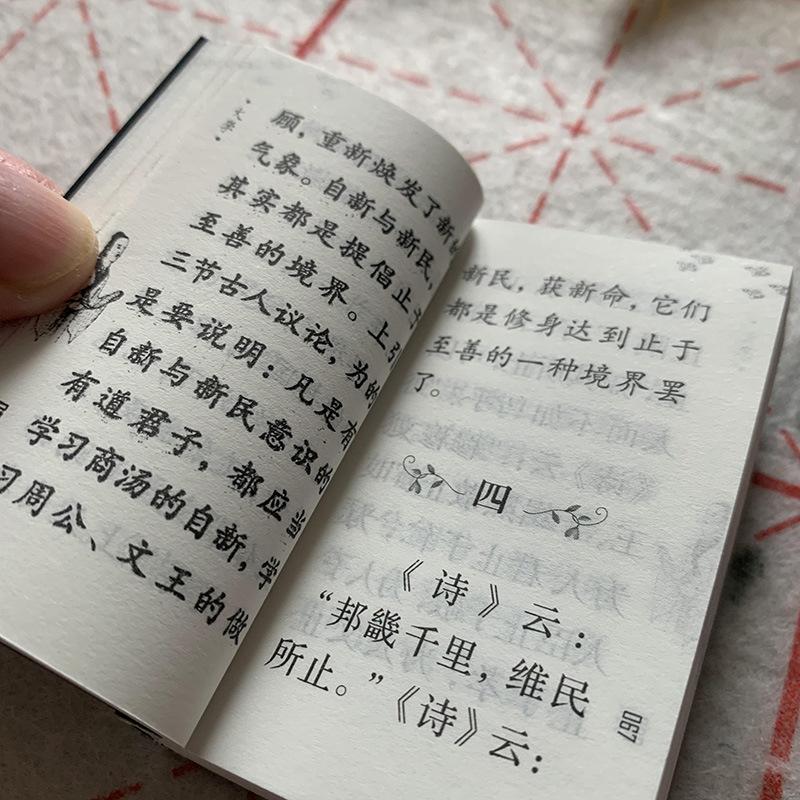 ·大学·
顾，重新焕发了新的
气象。自新与新民，
其实都是提倡止于
至善的境界。上引
三节古人议论，为的
是要说明：凡是有
自新与新民意识的
有道君子，都应当
学习商汤的自新，学
习周公、文王的做
新民，获新命，它们
都是修身达到止于
至善的一种境界罢
了。
四
《诗》云：
“邦畿千里，维民
所止。”《诗》云：
067